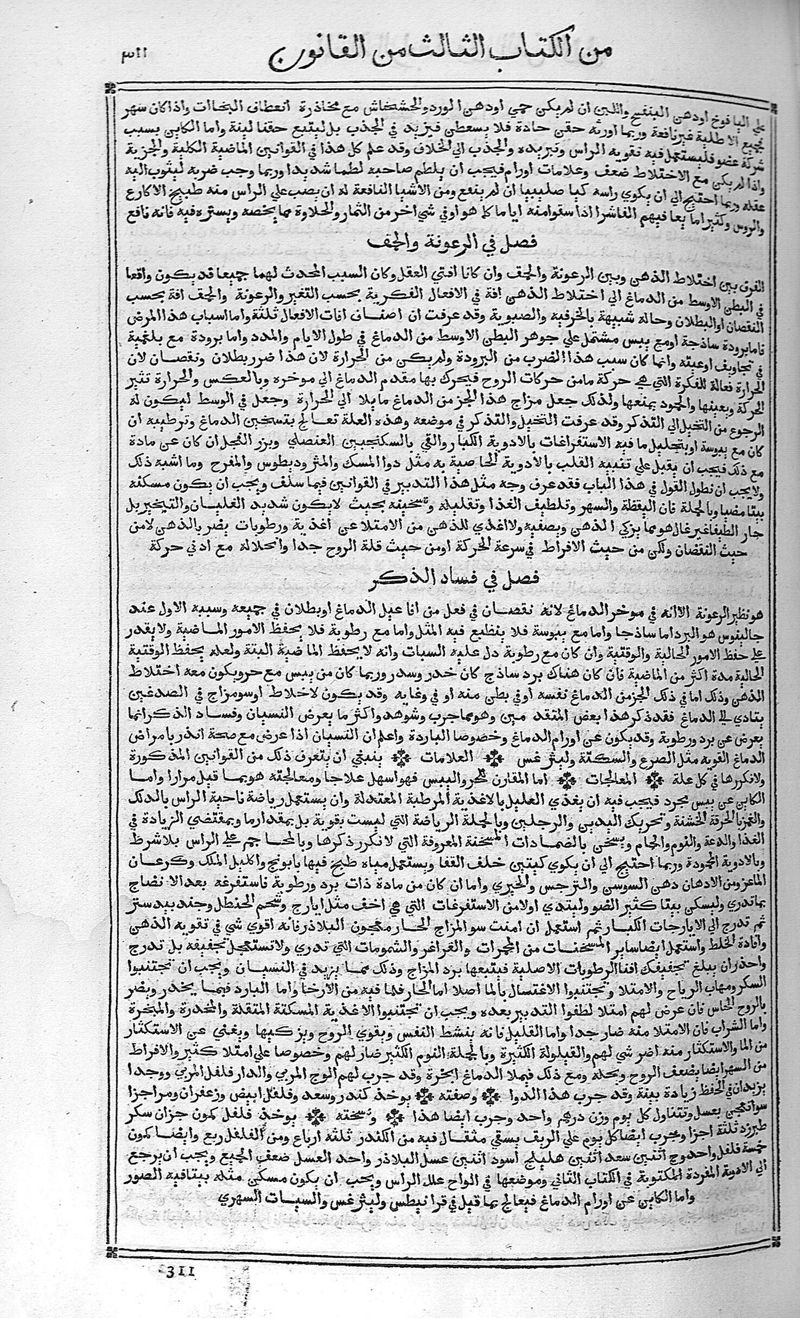 من الكتاب الثالث من القانون ٣١١
على اليافوخ اودهن البنفسج واللبن ان لم يكن حمي اودهن الورد والخشخاش مع مخاذرة انعطاف البخاات واذا كان سهر
بجميع الاطلية غير نافعة وربما اورثه حقن حادة فلا يسعطن فيزيد في الجذب بل ليتبع حقنا لينة واما الكاين بسبب
شركة عضو فليستعمل فيه تقويه الراس وتبريده والجذب الي الخلاف وقد علم كل هذا في القوانين الماضية الكلية والجزية
واذا لم يكن مع الاختلاط ضعف وعلامات اورام فيجب ان يلطم صاحبه لطما شديدا وربما وجب ضربه ليثوب اليه
عقله وربما احتيج الي ان يكوي راسه كيا صليبيا ان لم ينفع ومن الاشيا النافعة له ان يصب علي الراس منه طبيخ الاكارع
والروس وكثيرا ما يعافيهم الفاشرا اذا سقوا منه اياما كما هو او في شي اخر من الثمار والحلاوة مما يخفيه ويستره فيه فانه نافع
فصل في الرعونة والحمق
الفرق بين اختلاط الذهن وبين الرعونة والحمق وان كانا افتي العقل وكان السبب المحدث لهما جميعا قد يكون واقعا
في البطن الاوسط من الدماغ ان اختلاط الذهن افة في الافعال الفكرية بحسب التغير والرعونة والحمق افة بحسب
النقصان او البطلان وحاله شبيهة بالخرفيه والصبويه وقد عرفت ان اصناف افات الافعال ثلثة واما اسباب هذا المرض
فاما برودة ساذجة او مع يبس مشتمل علي جوهر البطن الاوسط من الدماغ في طول الايام والمدد واما برودة مع بلغمية
في تجاويف اوعيته وانما كان سبب هذا الضرب من البرودة ولم يكن من الحرارة لان هذا ضرر بطلان ونقصان لان
الحرارة فعالة للفكرة التي هي حركة ما من حركات الروح فيحرك بها مقدم الدماغ الي موخره وبالعكس والحرارة تثير
الحركة ويعينها والجمود يمنعها ولذلك جعل مزاج هذا الجز من الدماغ مايلا الي الحرارة وجعل في الوسط ليكون له
الرجوع من التخيل الي التذكر وقد عرفت التخيل والتذكر في موضعه وهذه العلة تعالج بتسخين الدماغ وترطيبه ان
كان مع يبوسة او بتحليل ما فيه الاستفراغات بالادوية الكبار والقي بالسكنجبين العنصلي وبزر الفجل ان كان عن مادة
مع ذلك فيجب ان يقبل علي تنبيه القلب بالادوية الخاصية به مثل دوا المسك والمثروديطوس والمفرح وما اشبه ذلك
ولا يجب ان نطول القول في هذا الباب فقد عرف وجه مثل هذا التدبير في القوانين فيما سلف ويجب ان يكون مسكنه
بيتا مضيا وبالجملة فان اليقظة والسهر وتلطيف الغذا وتقليله وتسخينه بحيث لا يكون شديد الغليان والتبخير بل
حار الطيفا غير غال هو مما يزكي الذهن ويصفيه ولا اغذي للذهن من الامتلا عن اغذية ورطوبات يضر بالذهن لا من
حيث النقصان ولكن من حيث الافراط في سرعة الحركة او من حيث قلة الروح جدا وانحلاله مع ادني حركة
فصل في فساد الذكر
هو نظير الرعونة الا انه في موخر الدماغ لانه نقصان في فعل من افاعيل الدماغ او بطلان في جميعه وسببه الاول عند
جالينوس هو البرد اما ساذجا واما مع يبوسة فلا ينطبع فيه المثل واما مع رطوبة فلا يحفظ الامور الماضية ولا يقدر
علي حفظ الامور الحالية والوقتية وان كان مع رطوبة دل عليه السبات وانه لا يحفظ الماضية البتة ولعله يحفظ الوقتية
الحالية مدة اكثر من الماضية فان كان هناك برد ساذج كان خدر وسدر وربما كان من يبس مع حر ويكون معه اختلاط
الذهن وذلك اما في ذلك الجز من الدماغ نفسه او في بطن منه او في وعايه وقد يكون لاخلاط او سو مزاج في الصدغين
يتادي الي الدماغ فقد ذكر هذا بعض المتقدمين وهو مما جرب وشوهد واكثر ما يعرض النسيان وفساد الذكر انما
يعرض عن برد ورطوبة وقد يكون عن اورام الدماغ وخصوصا الباردة واعلم ان النسيان اذا عرض مع صحة انذر بامراض
الدماغ القويه مثل الصرع والسكتة وليثرغس العلامات ينبغي ان يتعرف ذلك من القوانين المذكورة
ولا نكررها في كل علة المعالجات اما المقارن للحر واليبس فهو اسهل علاجا ومعالجته هو بما قيل مرارا واما
الكاين عن يبس مجرد فيجب فيه ان يغذي العليل بالاغذية المرطبة المعتدلة وان يستعمل رياضة ناحية الراس بالدلك
والغمز بالخرقة الخشنة وتحريك اليدين والرجلين وبالجملة الرياضة التي ليست بقوية بل بمقدار ما وبمقتضي الزيادة في
الغذا والدعة والنوم والحمام ويسخن بالضمادات المسخنة المعروفة التي لا نكرر ذكرها وبالمحاجم علي الراس بلا شرط
وبالادوية المحمرة وربما احتيج الي ان يكوي كيتين خلف القفا ويستعمل مياه طبخ فيها بابونج واكليل الملك وكرعان
الماعز ومن الادهان دهن السوسن والنرجس والخيري واما ان كان من مادة ذات برد ورطوبة فاستفرغه بعد الانضاج
بما تدري وليسكن بيتا كثير الضو وليبتدي اولا من الاستفرغات التي هي اخف مثل ايارج وشحم الحنظل وجندبيدستر
ثم تدرج الي الايارجات الكبار ثم استعمل ان امنت سو المزاج الحار معجون البلاذر فانه اقوي شي في تقويه الذهن
وافادة الحفظ واستعمل ايضا ساير المسخنات من المحمرات والغراغر والشمومات التي تدري ولا تستعمل تجفيفه بل تدرج
واحذر ان يبلغ تجفيفك افنا الرطوبات الاصلية فيتبعها برد المزاج وذلك مما يزيد في النسيان ويجب ان تجتنبوا
السكر ومهاب الرياح والامتلا وتجتنبوا الاغتسال بالما اصلا اما الحار فلما فيه من الارخا واما البارد فبما يخدر ويضر
بالروح الحاس فان عرض لهم امتلا لطفوا التدبير بعده ويجب ان تجتنبوا الاغذية المسكتة المثقلة والمخدرة والمبخرة
واما الشراب فان الامتلا منه ضار جدا واما القليل فانه ينشط النفس ويقوي الروح ويزكيها ويغني عن الاستكثار
من الما والاستكثار منه اضر شي لهم والقيلولة الكثيرة وبالجملة النوم الكثير ضار لهم وخصوصا علي امتلا كثير والافراط
من السهر ايضا يضعف الروح ويحله ومع ذلك فيملا الدماغ ابخرة وقد جرب لهم الوج المربي والدار فلفل المربي ووجدا
يزيدان في الحفظ زيادة بينة وقد جرب هذا الدوا وصفته يوخذ كندر وسعد وفلفل ابيض وزعفران ومر اجزا
سوا تعجن بعسل وتتناول كل يوم وزن درهم واحد وجرب ايضا هذا ونسخته يوخذ فلفل كمون جزان سكر
طبرزد ثلثة اجزا وجرب ايضا كل يوم علي الريف يسقي مثقال فيه من الكندر ثلثة ارباع ومن الفلفل ربع وايضا كمون
خمسة فلفل واحد وج اثنين سعد اثنين هليلج اسود اثنين عسل البلاذر واحد العسل ضعف الجميع ويجب ان يرجع
الي الادوية المفردة المكتوبة في الكتاب الثاني وموضعها في الواح علل الراس ويجب ان يكون مسكن مثله بيتا فيه الضو
واما الكاين عن اورام الدماغ فيعالج بما قيل في قرانيطس وليثرغس والسبات السهري
311